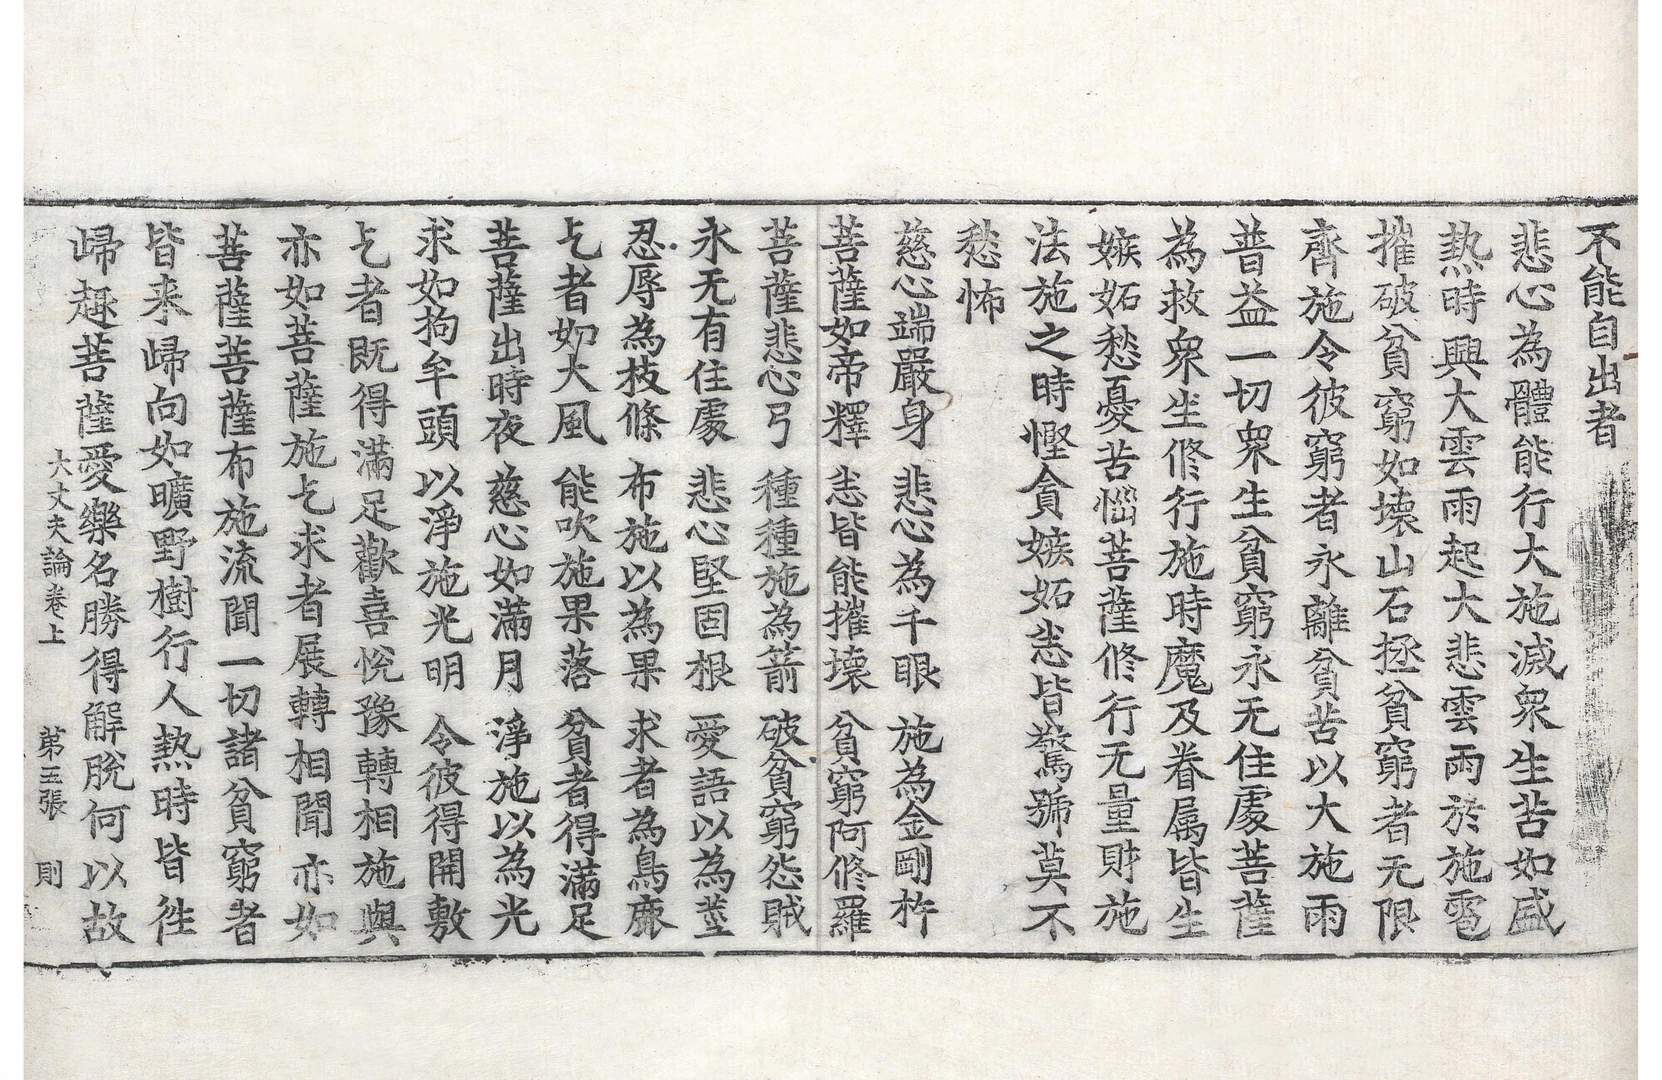 不能自出者
悲心為體能行大施滅衆生苦如盛
熱時興大雲雨起大悲雲雨於施雹
摧破貧窮如壊山石拯貧窮者无限
齊施令彼窮者永離貧苦以大施雨
普益一切衆生貧窮永无住處菩薩
為救衆生修行施時魔及眷属皆生
嫉妬愁憂苦惱菩薩修行无量財施
法施之時慳貪嫉妬恚皆驚號莫不
愁怖
慈心端嚴身　悲心為千眼　施為金剛杵
菩薩如帝釋　恚皆能摧壊　貧窮阿修羅
菩薩悲心弓　種種施為箭　破貧窮怨賊
永无有住處　悲心堅固根　愛語以為莖
忍辱為枝條　布施以為果　求者為鳥鹿
乞者如大風　能吹施果落　貧者得滿足
菩薩出時夜　慈心如滿月　淨施以為光
求如拘牟頭　以淨施光明　令彼得開敷
乞者既得滿足歡喜悅豫轉相施與
亦如菩薩施乞求者展轉相聞亦如
菩薩菩薩布施流聞一切諸貧窮者
皆来歸向如曠野樹行人熱時皆徃
歸趣菩薩愛樂名勝得解脫何以故
大丈夫論卷上　第五張　則